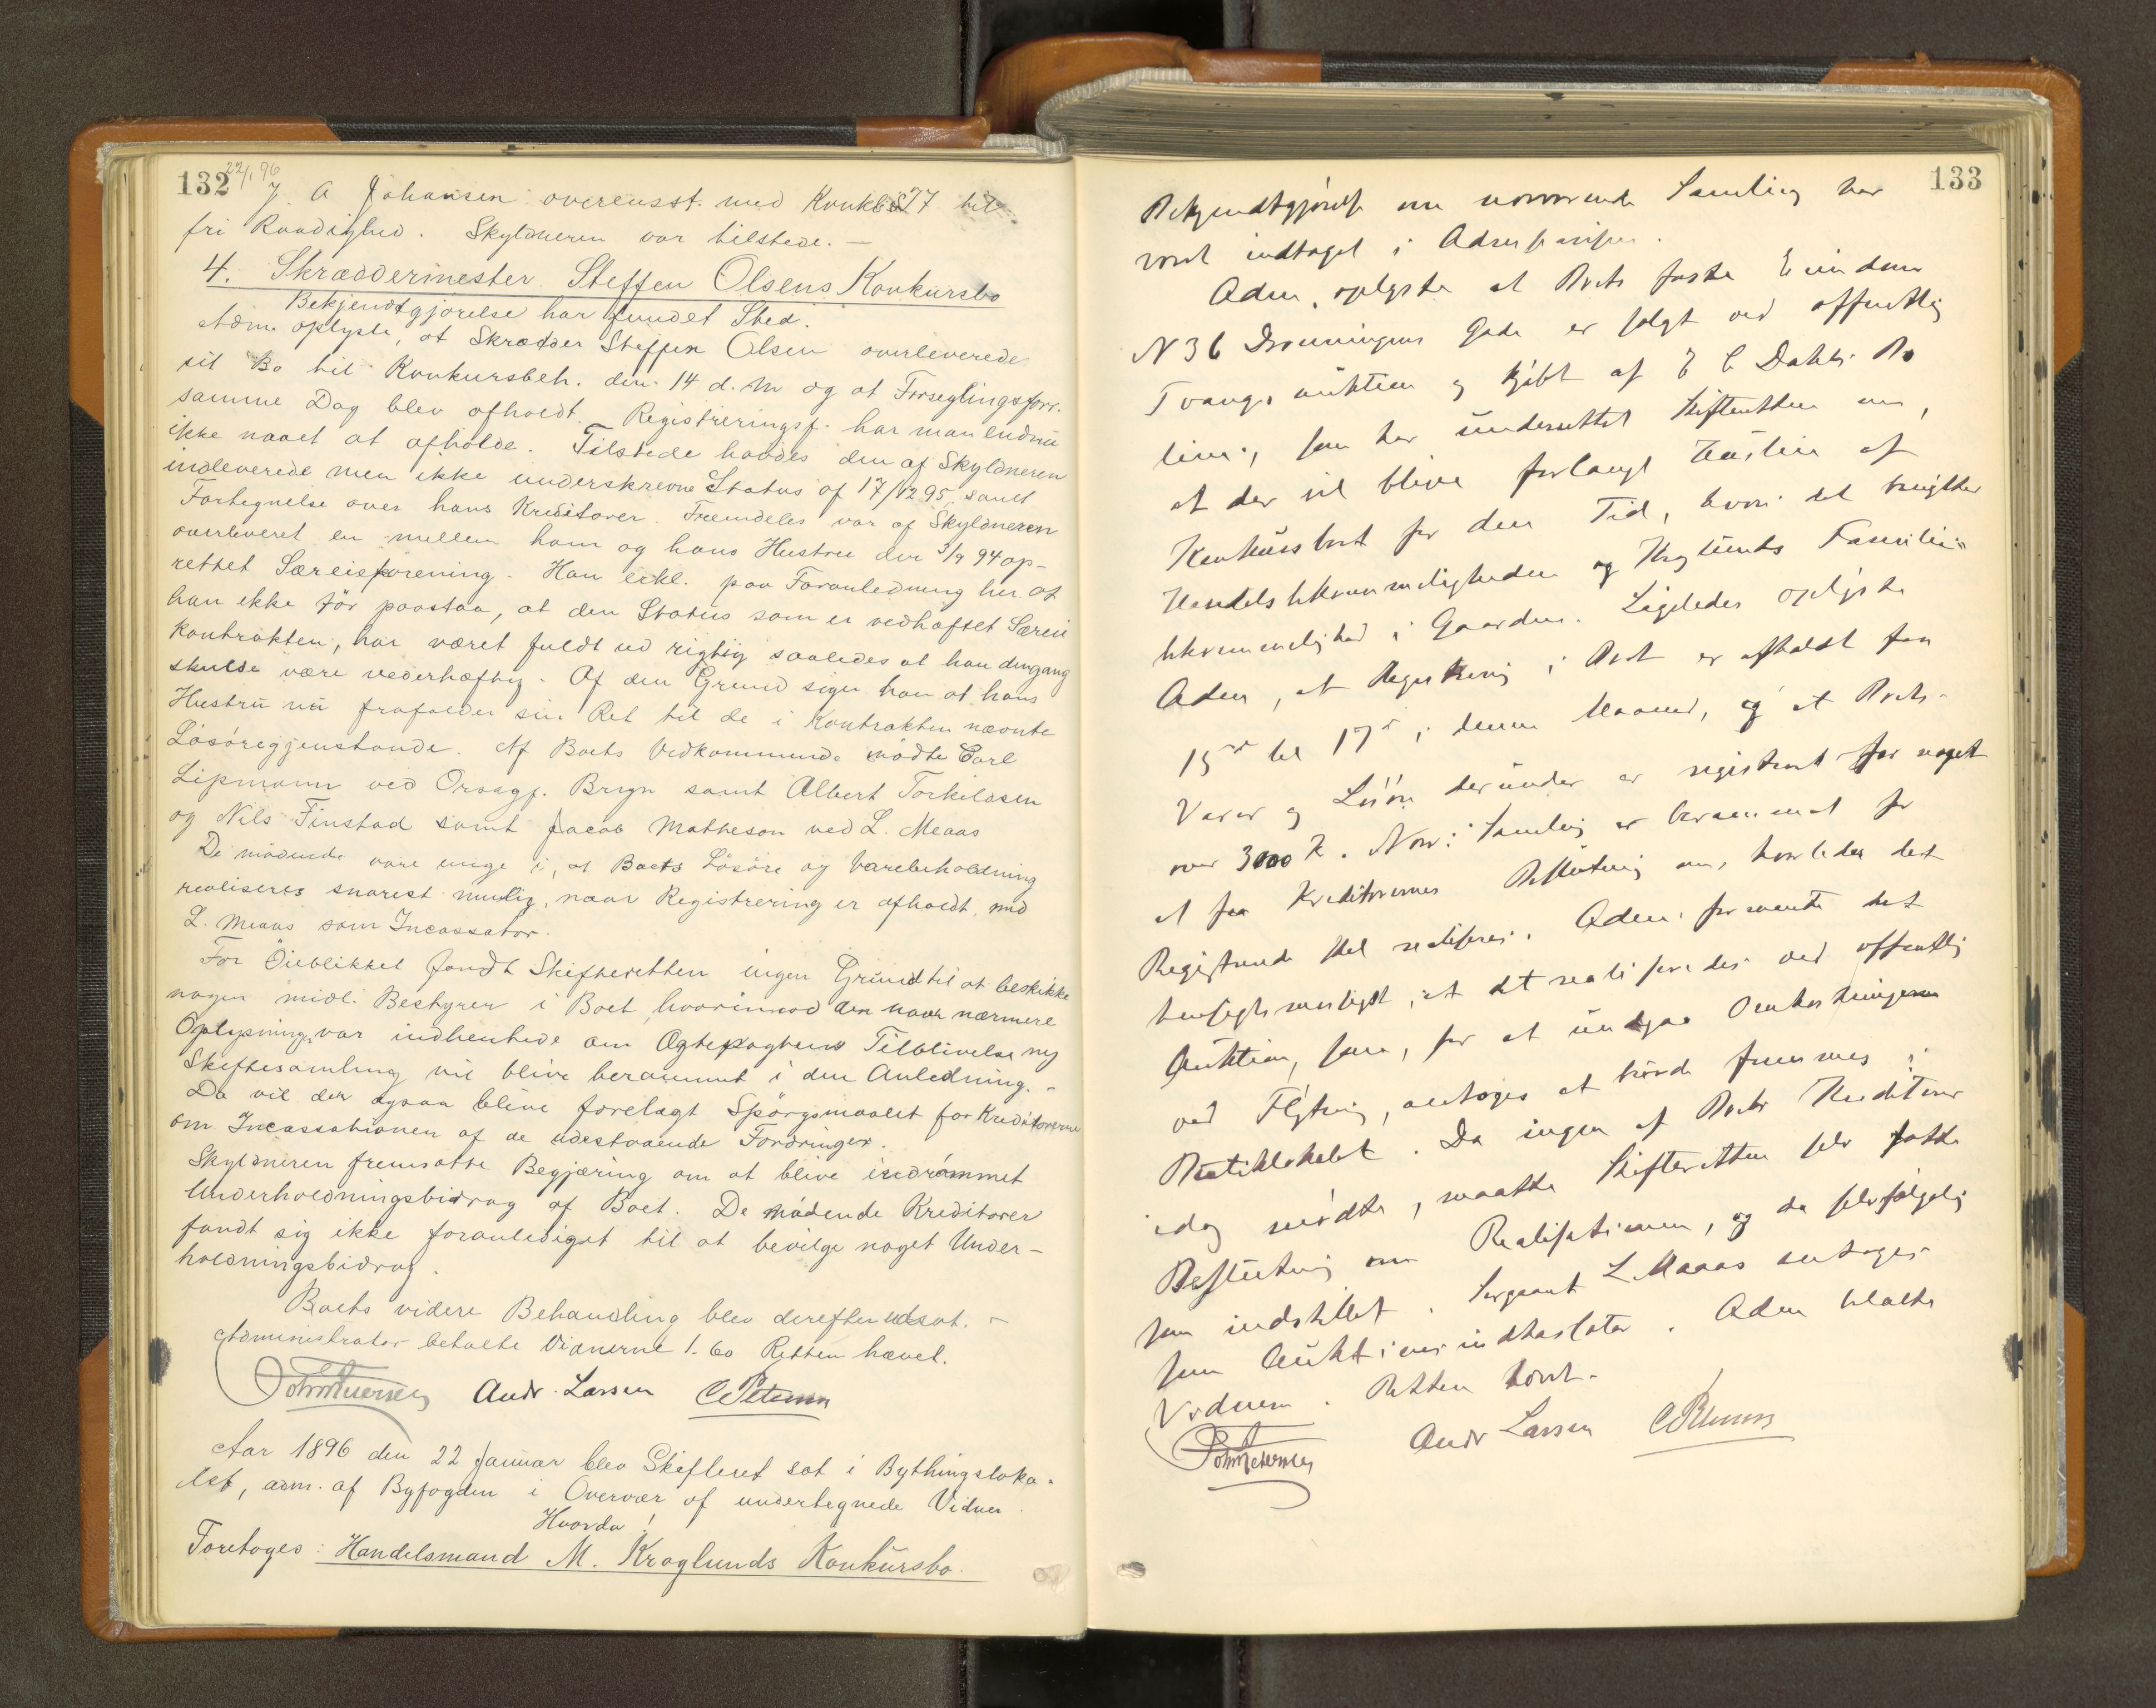 132
22/1 96
J. A Johansen overensst. med Konkl § 77 til
fri Raadighed. Skyldneren var tilstede. –
4. Skræddermester Steffen Olsens Konkursbo
Bekjendtgjørelse har fundet Sted.
Adm. oplyste, at Skrædder Steffen Olsen overleverede
sit Bo til Konkursbeh. den 14 d. M og at Forseglingsforr.
samme Dag blev afholdt. Registreringsf. har man endnu
ikke naaet at afholde. Tilstede havdes den af Skyldneren
indleverede men ikke underskrevne Status af 17/12 95 samt
Fortegnelse over hans Kreditorer. Fremdeles var af Skyldneren
overleveret en mellem ham og hans Hustru den 3/9 94 op-
rettet Særeisforening. Han erkl. paa Foranledning her at
han ikke tør paastaa, at den Status som er vedhæftet Særeie
kontrakten, har været fuldt ud rigtig saaledes at han dengang
skulde være vederhæftig. Af den Grund siger han at hans
Hustru nu frafalder sin Ret til de i Kontrakten nævnte
Løsøregjenstande. Af Boets Vedkommende mødte Carl
Lipmann ved Orsagf. Bryn samt Albert Torkildsen
og Nils Finstad samt Jacob Matheson ved L. Meaas
De mødende vare enige i, at Boets Løsøre og Varebeholdning
realiseres snarest mulig, naar Registrering er afholdt, med
L. Meaas som Incassator.
For Øieblikket fandt Skifteretten ingen Grund til at beskikke
nogen midl. Bestyrer i Boet, hvorimod den naar nærmere
Oplysninger var indhentede om Ægtepagtens Tilblivelse ny
Skiftesamling vil blive berammet i den Anledning. –
Da vil der ogsaa blive forelagt Spørgsmaalet for Kreditorerne
om Incassationen af de udestaaende Fordringer.
Skyldneren fremsatte Begjæring om at blive indrømmet
Underholdningsbidrag af Boet. De mødende Kreditorer
fandt sig ikke foranlediget til at bevilge noget Under-
holdningsbidrag.
Boets videre Behandling blev derefter udsat. –
Administrator betalte Vidnerne 1.60 Retten hævet.
Andr. Larsen C Petersen
Aar 1896 den 22 Januar blev Skifteret sat i Bythingsloka-
let, adm. af Byfogden i Overvær af undertegnede Vidner.
Hvorda!
Foretoges: Handelsmand M. Kroglunds Konkursbo.
133
Bekjendtgjørelse om nærværende Samling har
været indtaget i Adresseavisen.
Adm. oplyste at Boets faste Eiendom
N 36 Dronningens Gade er solgt ved offentlig
Tvangsauktion og kjøbt af E C Dahls Bo
som har underrettet Skifteretten om,
at der vil blive forlangt Husleie af
Konkursboet for den Tid, hvori det benytter
Handelsbekvemmeligheden og Kroglunds Familie-
bekvemmelighed i Gaarden. Ligeledes oplyste
Adm, at Registrering i Boet er afholdt fra
15de til 17de i denne Maaned, og at Boets
Varer og Løsøre derunder er registreret for noget
over 3000 K. Nærv. Samling er berammet for
at faa Kreditorernes Beslutning om, hvorledes det
Registrerede skal realiseres. Adm. formente det
hensigtsmæssigst, at det realiseredes ved offentlig
Auktion, som, for at undgaa Omkostningerne
ved Flytning, antoges at burde fremmes i
Butiklokalet. Da ingen af Boets Kreditorer
idag mødte, maatte Skifteretten selv fatte
Beslutning om Realisationen, og da selvfølgelig
som indstillet. Sergeant L Meaas antoges
som Auktionsindkassator. Adm betalte
Vidnerne. Retten hævet.
Andr Larsen C Petersen